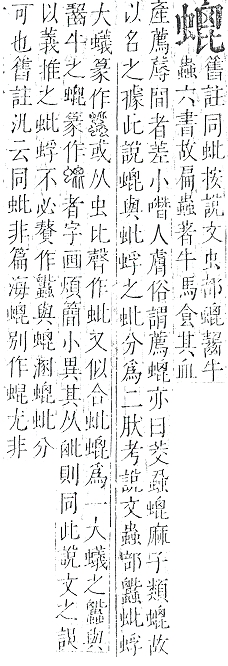 螕
舊註同蚍按說文虫部螕齧牛
蟲六書故扁蟲著牛馬食其血
產薦蓐間者差小喈人膚俗謂薦螕亦曰茭蝨螕麻子類螕故
以名之據此說螕與蚍蜉之蚍分爲二肰考說文蟲部蚍蜉
大螘篆作或从虫比聲作蚍又似合蚍螕爲一大螘之與
齧牛之螕篆作者字画煩簡小異其从𣬉則同此說文之誤
以義推之蚍蜉不必贅作與螕溷螕蚍分
可也舊註汎云同蚍非篇海螕別作蜫尤非